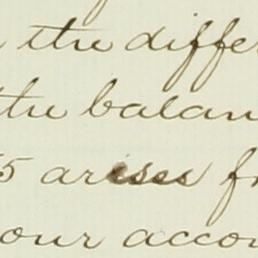 the differ
the balan
5 arises fr
our accou